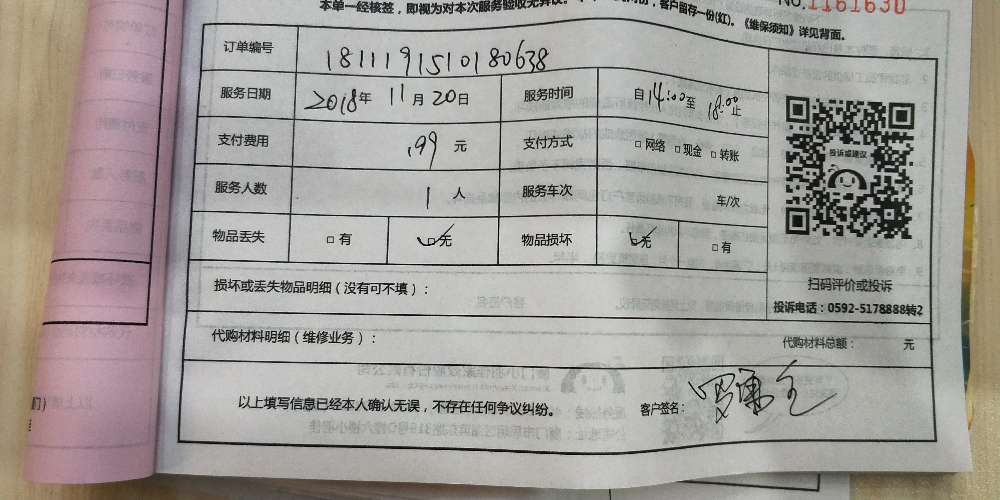 本单一经核签，即视为对本次服务验收无异议。
客户留存一份(红)。《维保须知》详见背面。
No.1161630
订单编号 1811191510180638
服务日期 2018年 11月20日 服务时间 自14:00至18:00止
支付费用 .99 元 支付方式 □网络 □现金 □转账
投诉或建议
服务人数 1 人 服务车次 车/次
物品丢失 □有 ☑无 物品损坏 ☑无 □有
扫码评价或投诉
损坏或丢失物品明细（没有可不填）：
投诉电话：0592-5178888转2
代购材料明细（维修业务）： 代购材料总额： 元
以上填写信息已经本人确认无误，不存在任何争议纠纷。 客户签名：